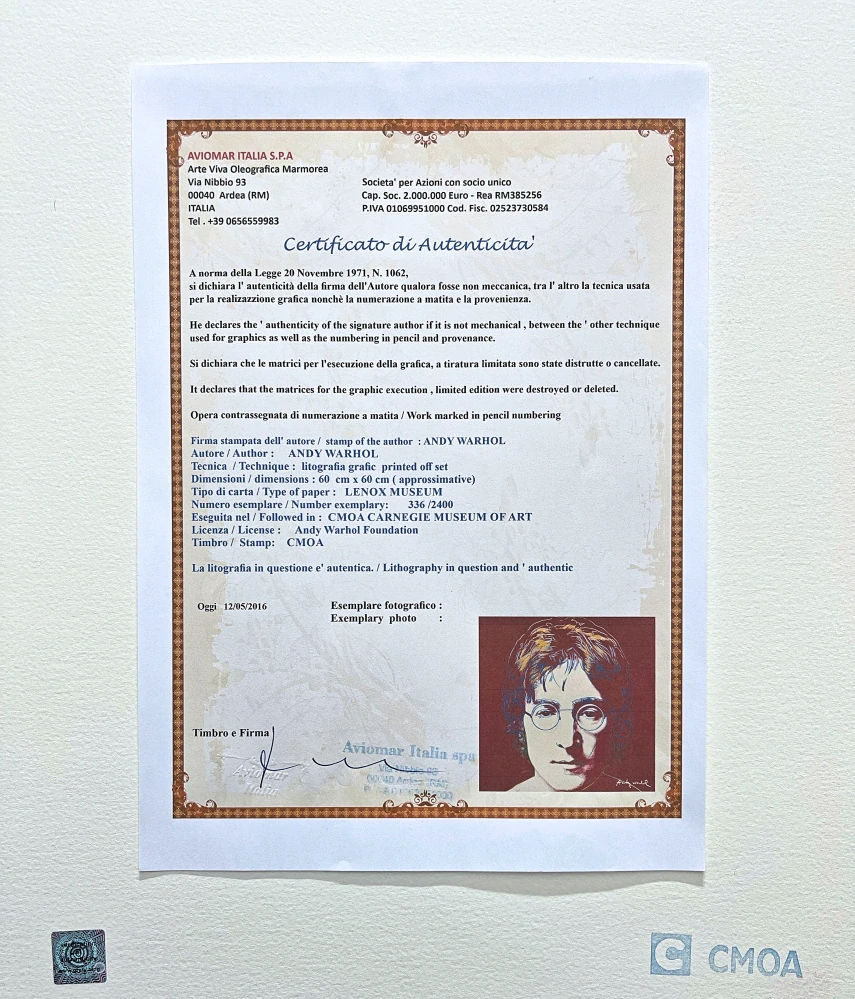 AVIOMAR ITALIA S.P.A
Arte Viva Oleografica Marmorea
Via Nibbio 93
00040 Ardea (RM)
ITALIA
Tel . +39 0656559983
Societa' per Azioni con socio unico
Cap. Soc. 2.000.000 Euro - Rea RM385256
P.IVA 01069951000 Cod. Fisc. 02523730584
Certificato di Autenticita'
A norma della Legge 20 Novembre 1971, N. 1062,
si dichiara l' autenticità della firma dell'Autore qualora fosse non meccanica, tra l' altro la tecnica usata
per la realizazzione grafica nonchè la numerazione a matita e la provenienza.
He declares the ' authenticity of the signature author if it is not mechanical , between the ' other technique
used for graphics as well as the numbering in pencil and provenance.
Si dichiara che le matrici per l'esecuzione della grafica, a tiratura limitata sono state distrutte o cancellate.
It declares that the matrices for the graphic execution , limited edition were destroyed or deleted.
Opera contrassegnata di numerazione a matita / Work marked in pencil numbering
Firma stampata dell' autore / stamp of the author : ANDY WARHOL
Autore / Author : ANDY WARHOL
Tecnica / Technique : litografia grafic printed off set
Dimensioni / dimensions : 60 cm x 60 cm ( approssimative)
Tipo di carta / Type of paper : LENOX MUSEUM
Numero esemplare / Number exemplary: 336 /2400
Eseguita nel / Followed in : CMOA CARNEGIE MUSEUM OF ART
Licenza / License : Andy Warhol Foundation
Timbro / Stamp: CMOA
La litografia in questione e' autentica. / Lithography in question and ' authentic
Oggi 12/05/2016
Esemplare fotografico :
Exemplary photo :
Timbro e Firma
Aviomar Italia spa
Via Nibbio 93
00040 Ardea (RM)
Aviomar
Italia
Andy Warhol
C CMOA